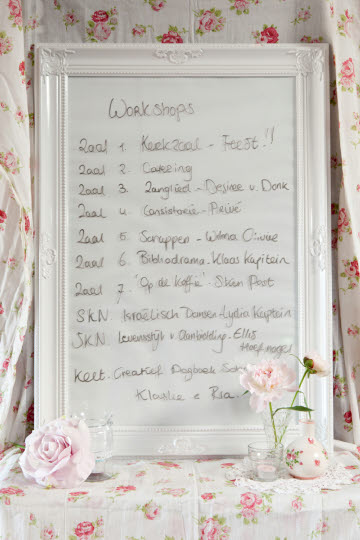 Workshops
Zaal 1. Kerkzaal - Feest!!
Zaal 2. Catering
Zaal 3. Zanglied - Desiree v. Donk
Zaal 4. - 
Zaal 5. Scrappen - Wilma
Zaal 6. Bibliodrama - Klaas Kapitein
Zaal 7. "Op de Koffie" Stien Post
SKN. Israëlisch Dansen - Lydia Kapitein
SKN. Levensstijl v. Aanbidding - Ellis
Hoefnagel
Kelt. Creatief Dagboek
Klaaske e Ria.